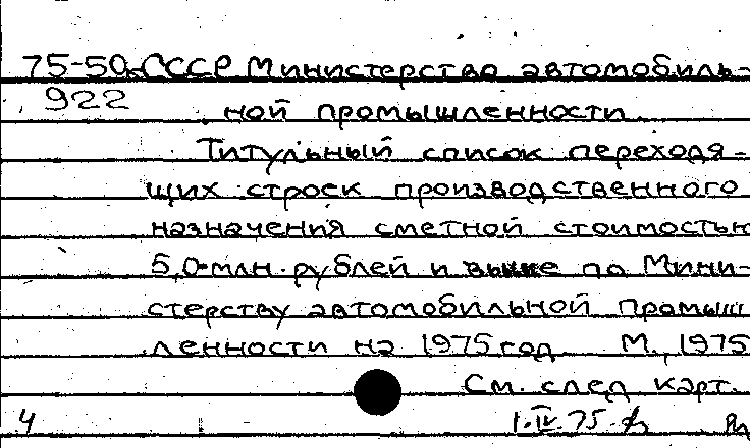 75-50 СССР Министерство автомобиль-
922 ной промышленности.
Титульный список переходя-
щих строек производственного
назначения сметной стоимостью
5,0 млн. рублей и выше по Мини-
стерству автомобильной промыш
ленности на 1975 год М., 1975
См. след карт.
4 1.IV.75